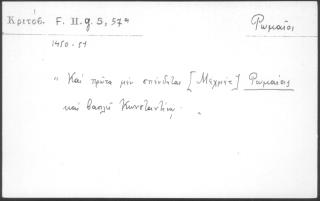 Κριτόβ. F. II. g. 5, 57α Ρωμαῖοι
1450-51
"Καὶ πρῶτα μὲν σπένδεται [Μεχμὲτ] Ρωμαίοις
καὶ βασιλεῖ Κωνσταντίνῳ.